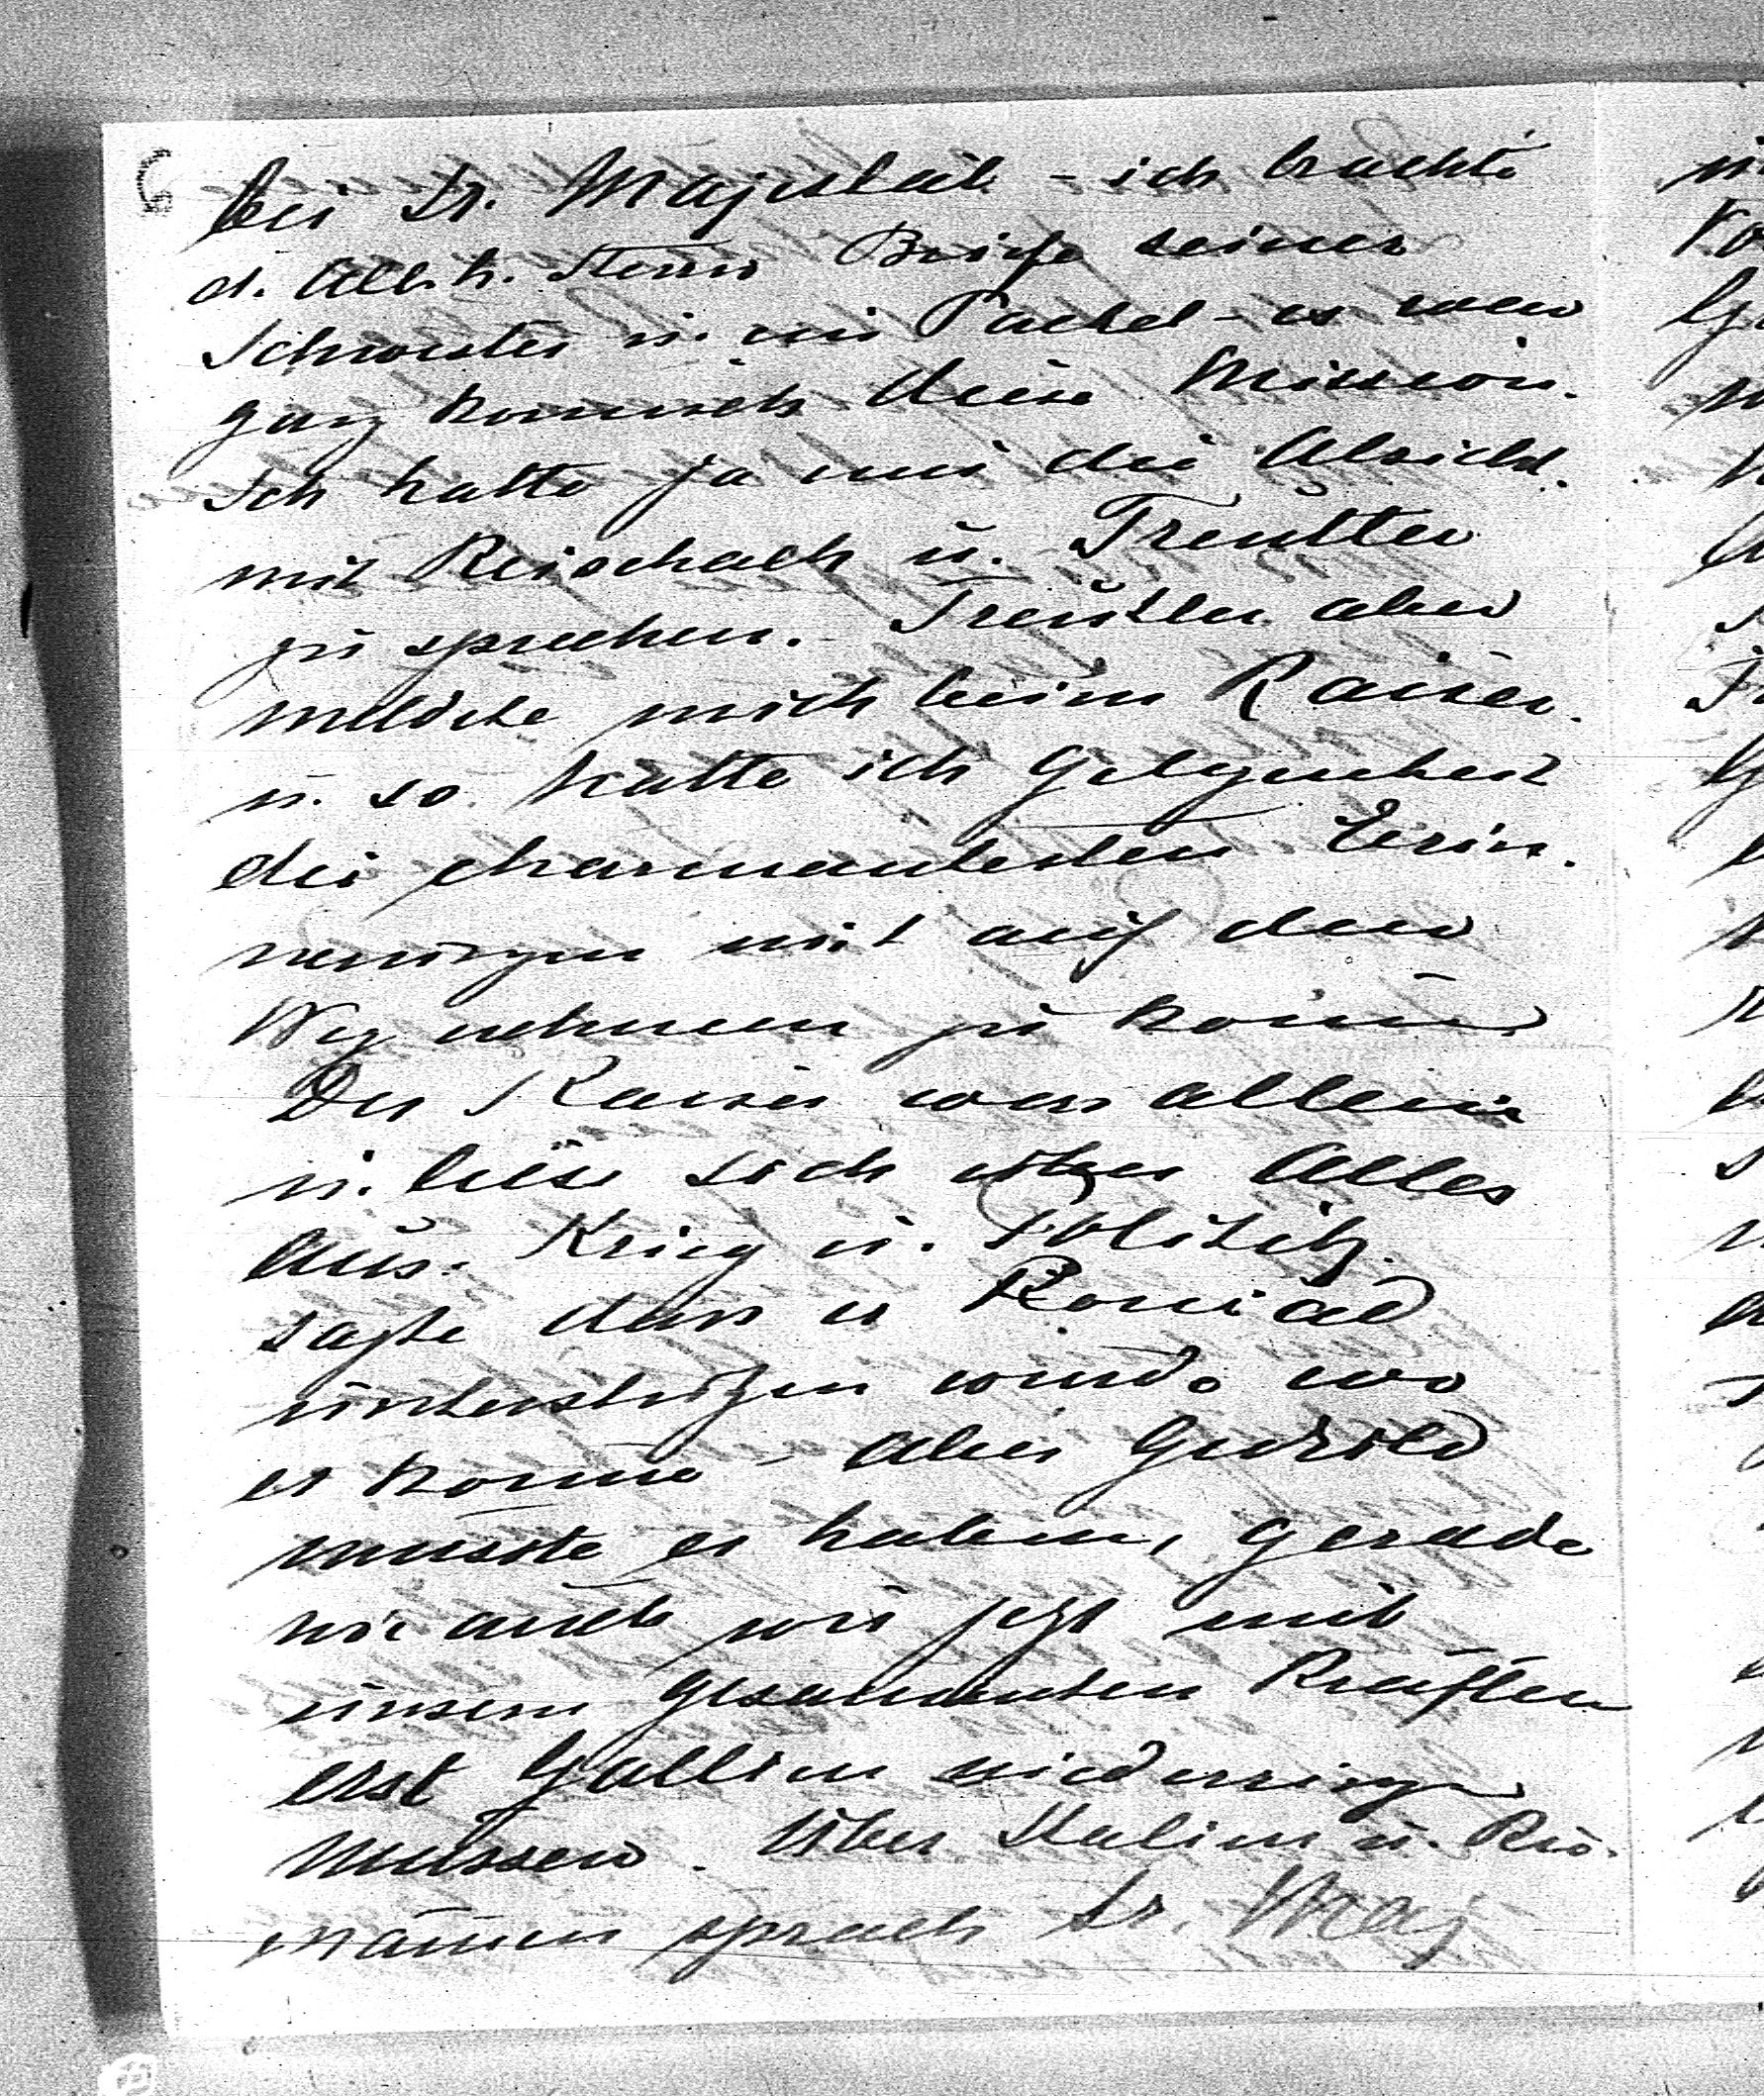 6
bei Sr. Majestät - ich brachte
d. Allerh. Herrn Briefe seiner
Schwester u. ein Packet - es war
ganz komisch diese Mission.
Ich hatte ja nur die Absicht
mit Reischach u. Treutler
zu sprechen. Treutler aber
meldete mich beim Kaiser
u. so hatte ich Gelegenheit
die charmantesten Erin-
nerungen mit auf den
Weg nehmen zu können
Der Kaiser war allein
u. liess sich über Alles
aus. Krieg u. Politik.
sagte dass er Konrad
unterstützen würde wo
er könne - aber Geduld
müsste er haben, gerade
wie auch wir jetzt mit
unsern gesammten Kräften
erst Gallien niederringen
müssen. Über Italien u. Ru-
mänien sprach Sr. Maj